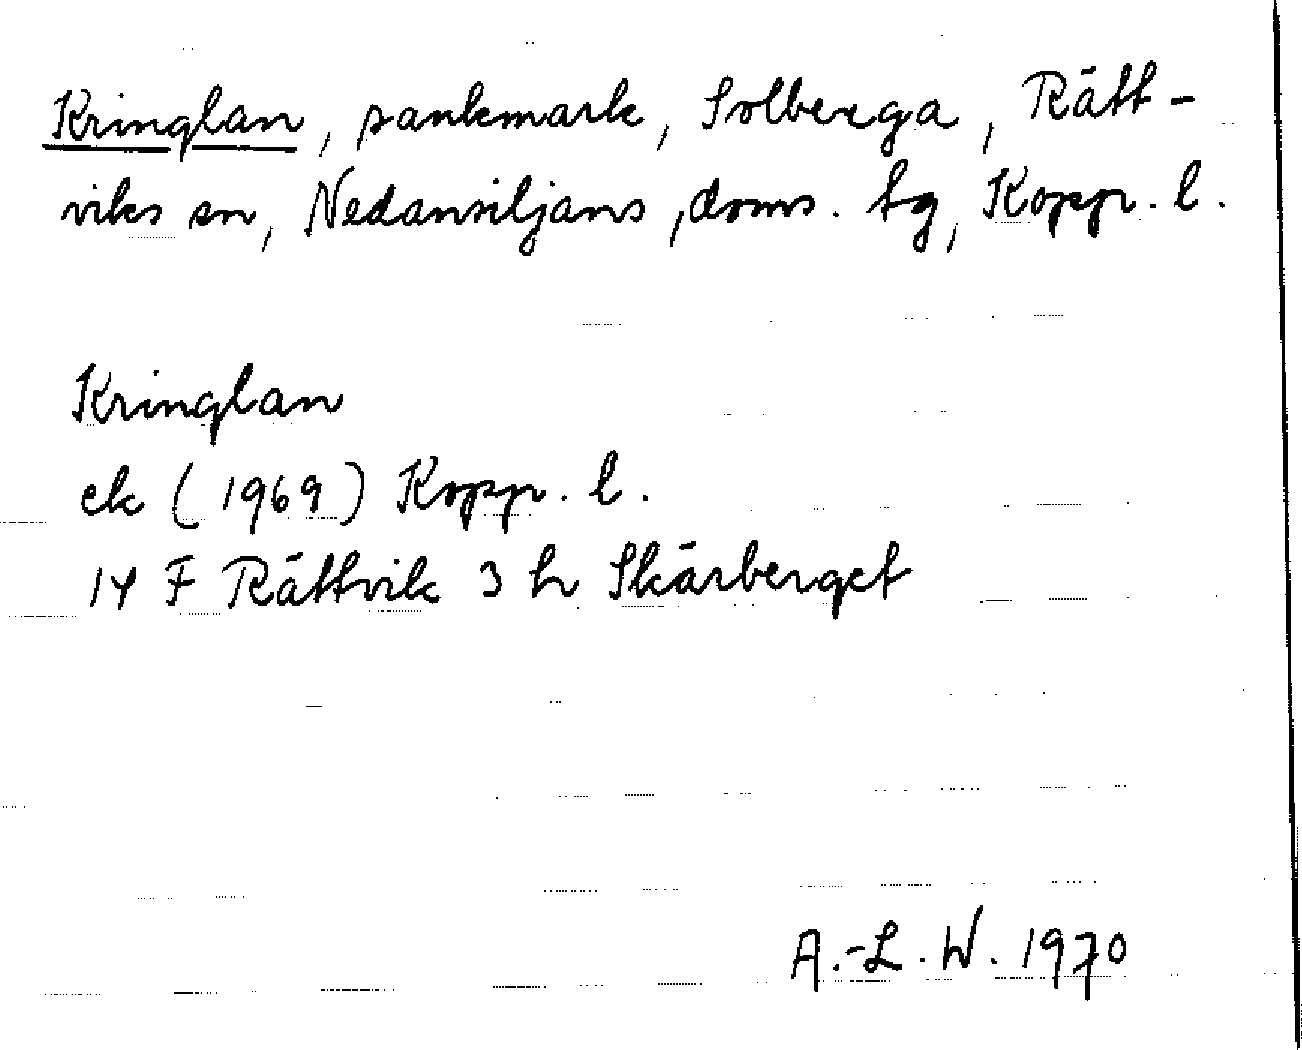 Kringlan, sankmark, Solberga, Rätt-
viks sn, Nedansiljans, doms. tg, Kopp. l.
Kringlan
ek (1969) Kopp. l.
14 F Rättvik 3 h Skärberget
A.-L. W. 1970